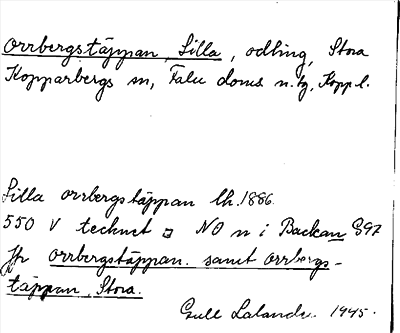 Orrbergstäppan, Lilla, odling, Stora
Kopparbergs sn, Falu doms n. tg, Kopp l.
Lilla orrbergstäppan lh. 1886.
550 V tecknet □ NO n i Backan 897
Jfr orrbergstäppan. samt orrbergs-
täppan, Stora.
Gull Lalander. 1945.